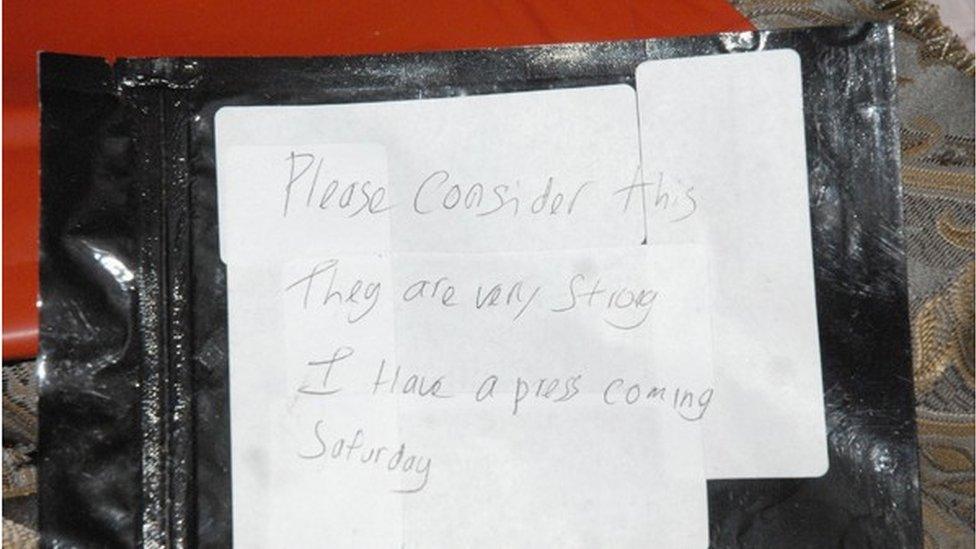 Please Consider this
They are very Strong
I Have a press coming
Saturday